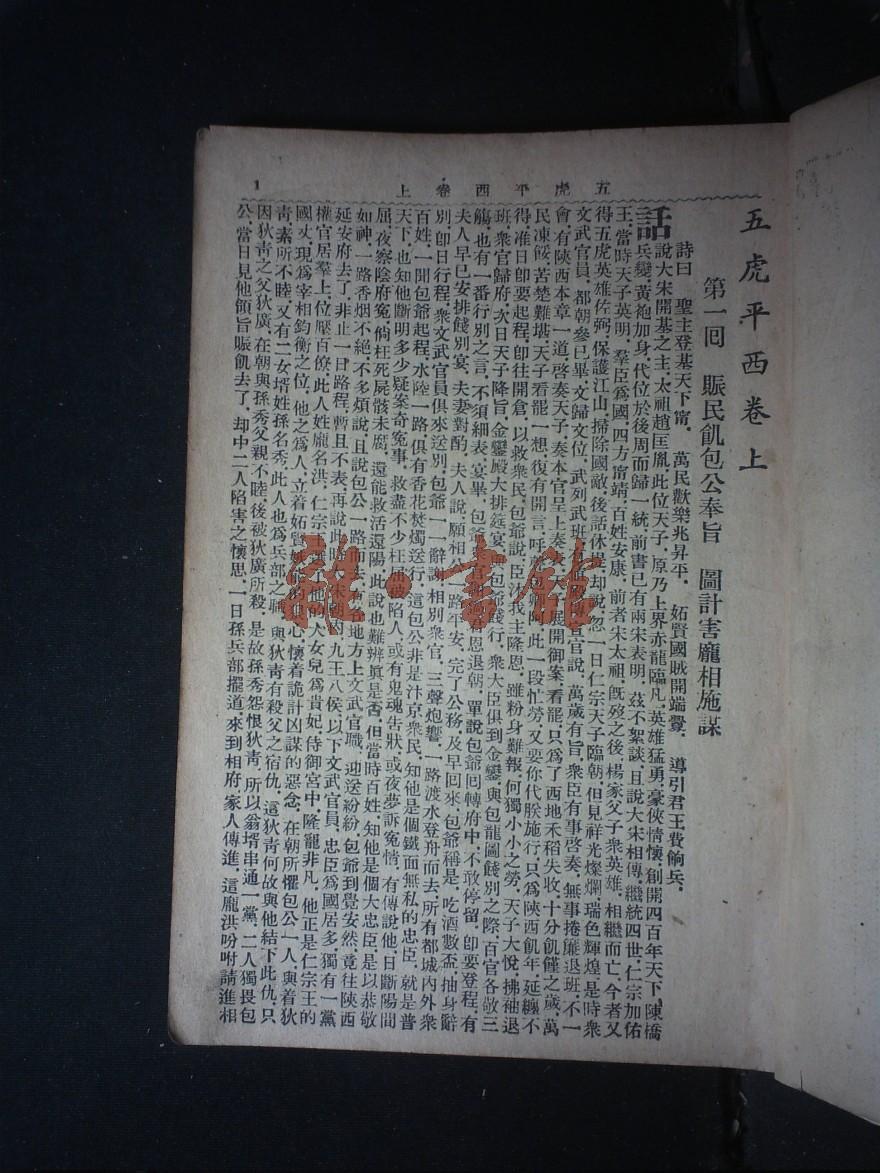 五虎平西卷上
1
五虎平西卷上
第一回 賑民飢包公奉旨 圖計害龐相施謀
詩曰 聖主登基天下甯 萬民歡樂兆昇平 妬賢國賊開端釁 導引君王費餉兵
話說大宋開基之主、太祖趙匡胤、此位天子、原乃上界赤龍臨凡、英雄猛勇、豪俠情懷、創開四百年天下、陳橋
兵變、黃袍加身、代位於後周而歸一統、前書已有兩宋表明、茲不絮談、且說大宋相傳、繼統四世、仁宗加佑
王、當時天子英明、羣臣爲國、四方甯靖、百姓安康、前者宋太祖、旣歿之後、楊家父子衆英雄、相繼而亡、今者又
得五虎英雄佐弼、保護江山、掃除國敵、後話休提、却說、忽一日仁宗天子臨朝、但見祥光燦爛、瑞色輝煌、是時衆
文武官員、都朝參已畢、文歸文位、武列武班、殿傳宣官說、萬歲有旨、衆臣有事啓奏、無事捲簾退班、不一
會、有陝西本章一道、啓奏天子、奏本官呈上奏章、展開御案、看罷、只爲了西地禾稻失收、十分飢饉之歲、萬
民凍餒、苦楚難堪、天子看罷一想、復有開言、呼此一段忙勞、又要你代朕施行、只爲陝西飢年、延纏不
得、准日卽要起程、卽往開倉、以救衆民、包爺說、臣沐我主隆恩、雖粉身難報、何獨小小之勞、天子大悅、拂袖退
班、衆官歸府、次日天子降旨、金鑾殿大排筵宴、包爺餞行、衆大臣俱到金鑾、與包龍圖餞別之際、百官各敬三
觴、也有一番行別之言、不須細表、宴畢、包爺官君恩退朝、單說包爺回轉府中、不敢停留、卽要登程、有
夫人早已安排餞別宴、夫妻對酌、夫人說、願相公一路平安、完了公務、及早回來、包爺稱是、吃酒數盃、抽身辭
別、卽日行程、衆文武官員俱來送別、包爺一一辭謝、相別衆官、三聲炮響、一路渡水登舟而去、所有都城內外衆
百姓、一聞包爺起程、水陸一路、俱有香花焚燭送行、這包公非是汴京衆民知他是個鐵面無私的忠臣、就是普
天下、也知他斷明多少疑案奇寃事、救盡不少枉屈被陷人、或有鬼魂告狀、或夜夢訴寃情、有傳說他、日斷陽間
屈、夜察陰府寃、倘枉死屍骸未腐、還能救活還陽、此說也難辨眞是否、但當時百姓、知他是個大忠臣、是以恭敬
如神、一路香烟不絕、不多煩說、且說包公一路而去、各地方上文武官職、迎送紛紛、包爺到覺安然、竟往陝西
延安府去了、非止一日路程、暫且不表、再說此時大宋朝內、九王八侯、以下文武官員、忠臣爲國居多、獨有一黨
權官居羣上、位壓百僚、此人姓龐名洪、仁宗他的大女兒爲貴妃、侍御宮中、隆寵非凡、他正是仁宗王的
國丈、現爲宰相鈞衡之位、他之爲人、立着妬賢心、懷着詭計凶謀的惡念、在朝所懼包公一人、與着狄
靑素所不睦、又有二女壻姓孫名秀、此人也爲兵部之職、與狄靑有殺父之宿仇、這狄靑何故與他結下此仇、只
因狄靑之父狄廣、在朝與孫秀父親不睦、後被狄廣所殺、是故孫秀怨恨狄靑、所以翁壻串通一黨、二人獨畏包
公、當日見他領旨賑飢去了、却中二人陷害之懷思、一日孫兵部擺道來到相府、家人傳進、這龐洪吩咐請進相